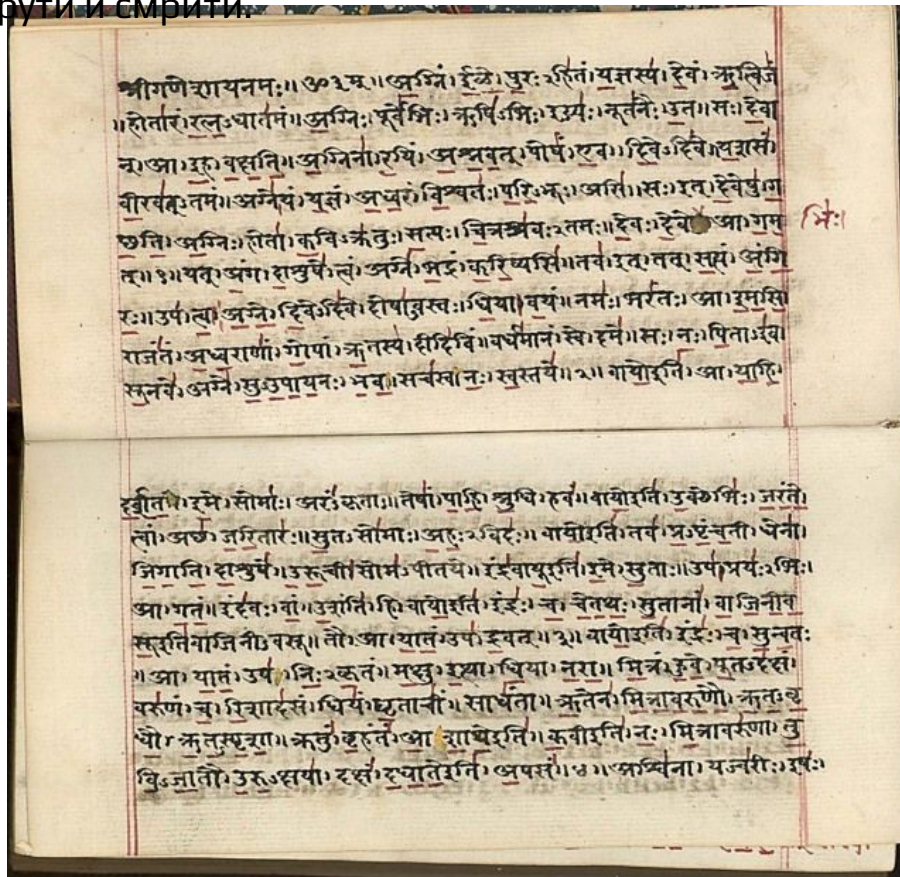 рути и смрити.
श्रीगणेशायनमः॥ ॐ३म्॥ अग्निं। ईळे। पुरःऽहितं। यज्ञस्य। देवं। ऋत्विजं
॥होतारं। रत्नऽधातमं॥ अग्निः। पूर्वेभिः। ऋषिऽभिः। ईड्यः। नूतनैः। उत॥ सः। देवा
न्। आ। इह। वक्षति॥ अग्निना। रयिं। अश्नवत्। पोषं। एव। दिवेऽदिवे॥ यशसं।
वीरवत्ऽतमं॥ अग्ने। यं। यज्ञं। अध्वरं। विश्वतः। परिऽभूः। असि॥ सः। इत्। देवेषु। ग
छति। अग्निः। होता। कविऽक्रतुः। सत्यः। चित्रश्रवःऽतमः॥ देवः। देवे आ। गम
भिः।
त्॥१॥ यत्। अंग। दाशुषे। त्वं। अग्ने। भद्रं। करिष्यसि॥ तव। इत्। तत्। सत्यं। अंगि
रः॥ उप। त्वा। अग्ने। दिवेऽदिवे। दोषाऽवस्तः। धिया। वयं॥ नमः। भरंतः। आ। इमसि।
राजंतं। अध्वराणां। गोपां। ऋतस्य। दीदिविं॥ वर्धमानं। स्वे। दमे॥ सः। नः। पिताऽइव।
सूनवे। अग्ने। सुऽउपायनः। भव॥ सचस्व। नः। स्वस्तये॥२॥ वायोइति। आ। याहि।
दर्शत। इमे। सोमाः। अरंऽकृताः॥ तेषां। पाहि। श्रुधि। हवं॥ वायोइति। उक्थेभिः। जरंते।
त्वां। अछ। जरितारः॥ सुतऽसोमाः। अहःऽविदः॥ वायोइति। तव। प्रऽपृंचती। धेना।
जिगाति। दाशुषे॥ उरूची। सोमऽपीतये॥ इंद्रवायूइति। इमे। सुताः॥ उप। प्रयःऽभिः।
आ। गतं॥ इंदवः। वां। उशंति। हि। वायोइति। इंद्रः। च। चेतथः। सुतानां। वाजिनीव
सूइतिवाजिनीऽवसू॥ तौ। आ। यातं। उप। द्रवत्॥३॥ वायोइति। इंद्रः। च। सुन्वतः
॥आ। यातं। उप। निःऽकृतं॥ मक्षु। इत्था। धिया। नरा॥ मित्रं। हुवे। पूतऽदक्षं।
वरुणं। च। रिशादसं। धियं। घृताचीं। साधंता॥ ऋतेन। मित्रावरुणौ। ऋतऽवृ
धौ। ऋतऽस्पृशा॥ क्रतुं। बृहंतं। आशाथेइति॥ कवीइति। नः। मित्रावरुणा। तु
विऽजातौ। उरुऽक्षया। दक्षं। दधातेइति। अपसं॥४॥ अश्विना। यज्वरीः। इषः।